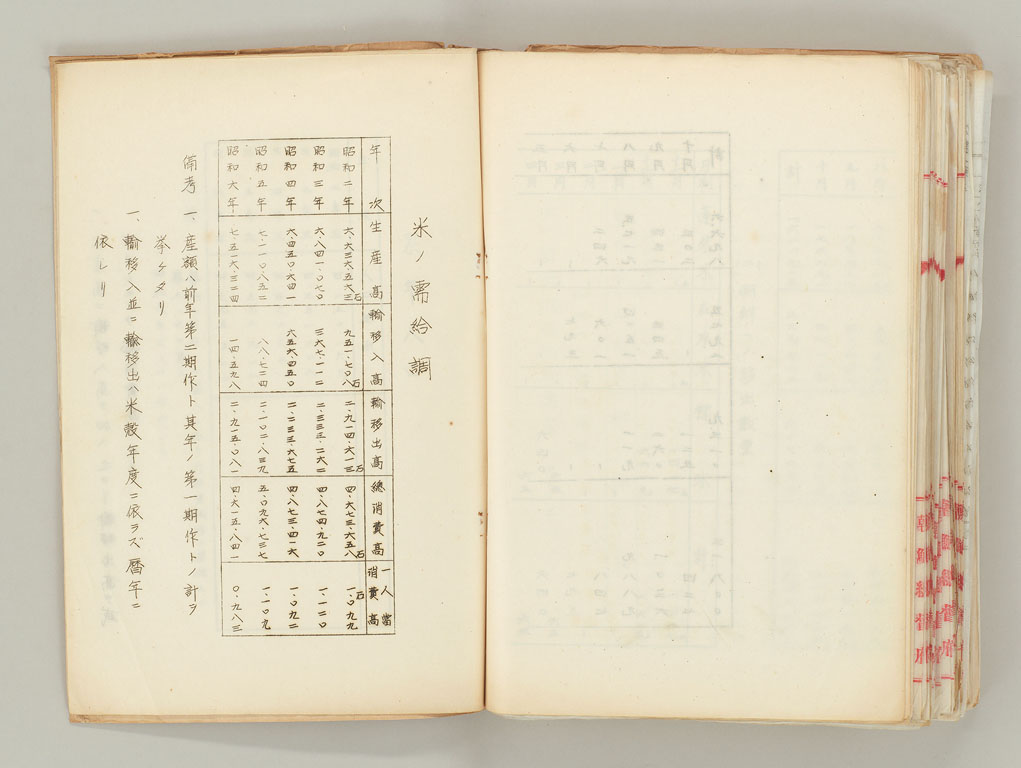 米ノ需給調
年次 生産高 輸移入高 輸移出高 總消費高 一人當消費高
昭和二年 六・六三六・五六三石 九五一・七〇八石 二・九一四・六一三石 四・六七三・六五八石 一・〇九九石
昭和三年 六・八四一・〇七〇 三六七・一一二 二・三三三・二六二 四・八七四・九二〇 一・一二〇
昭和四年 六・四五〇・六四一 六五六・四五〇 二・二三三・六七五 四・八七三・四一六 一・〇九二
昭和五年 七・一一〇・八五二 八八・七二四 二・一〇二・八三九 五・〇九六・七三七 一・一〇九
昭和六年 七・五一六・三二四 一四・五九八 二・九一五・〇八一 四・六一五・八四一 〇・九八三
備考 一、産額ハ前年第二期作ト其年ノ第一期作トノ計ヲ
挙ケタリ
一、輸移入並ニ輸移出ハ米穀年度ニ依ラズ暦年ニ
依レリ